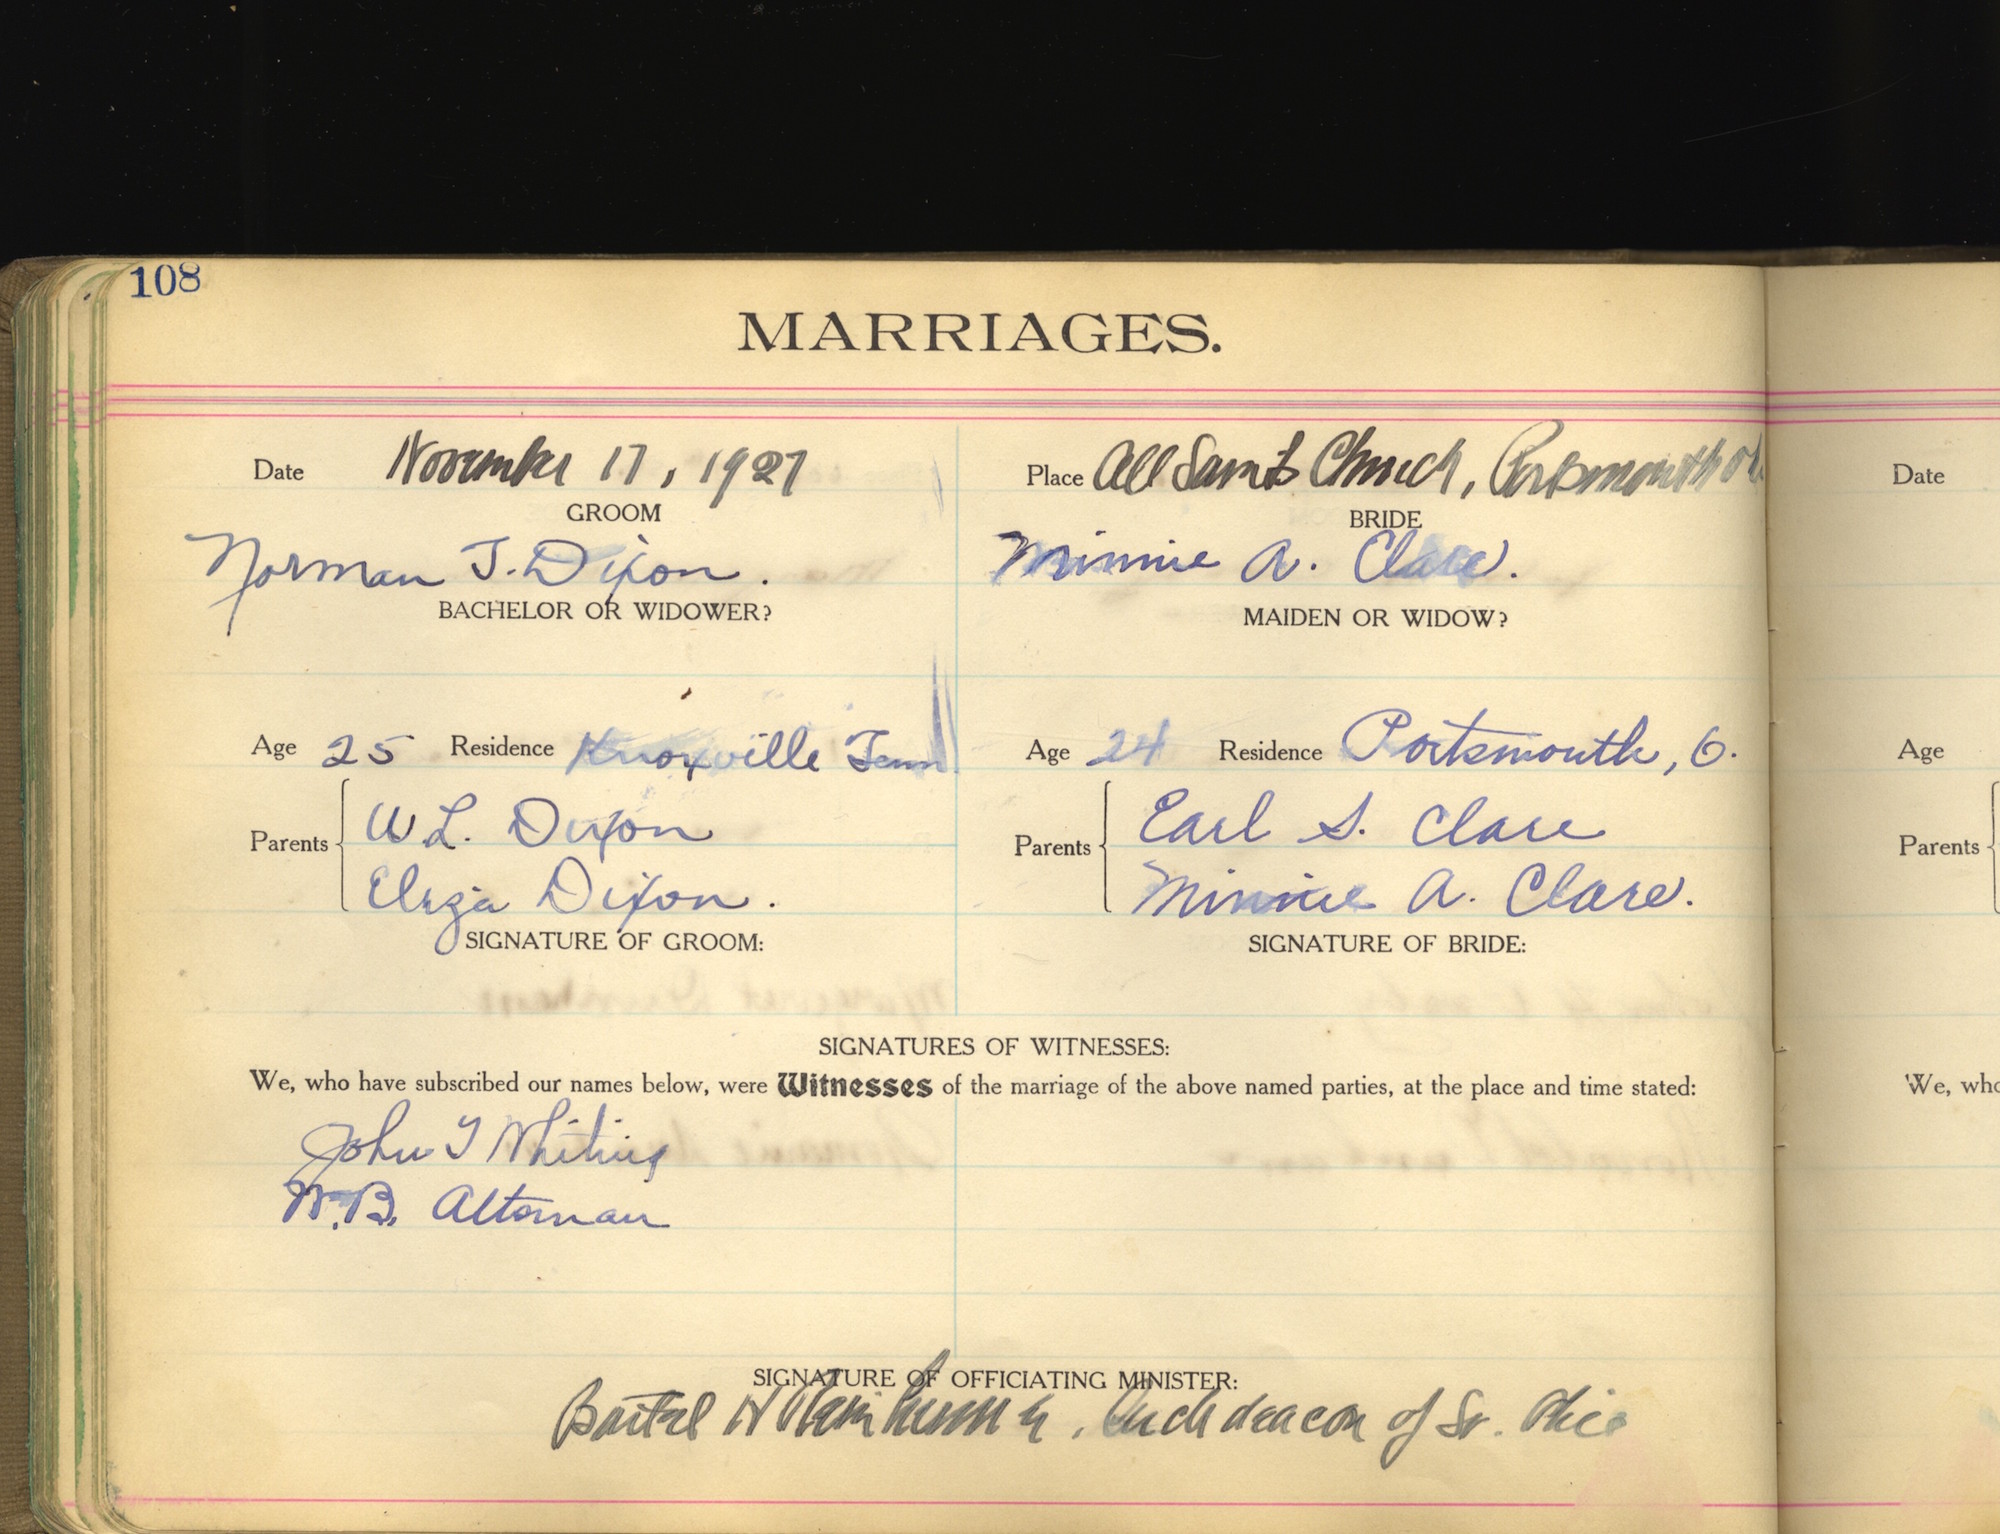 108
MARRIAGES.
Date November 17, 1927
Place All Saints Church, Portsmouth
GROOM
BRIDE
Norman J. Dixon.
Minnie A. Clare.
BACHELOR OR WIDOWER?
MAIDEN OR WIDOW?
Age 25 Residence Knoxville Tenn
Age 24 Residence Portsmouth, O.
Parents W L. Dixon
Eliza Dixon.
Parents Earl S. Clare
Minnie A. Clare.
SIGNATURE OF GROOM:
SIGNATURE OF BRIDE:
SIGNATURES OF WITNESSES:
We, who have subscribed our names below, were Witnesses of the marriage of the above named parties, at the place and time stated:
John T Whiting
W.B. Altsman
SIGNATURE OF OFFICIATING MINISTER:
Bartel H Reinheimer, Archdeacon of So. Ohio
Date
Age
Parents
We, who